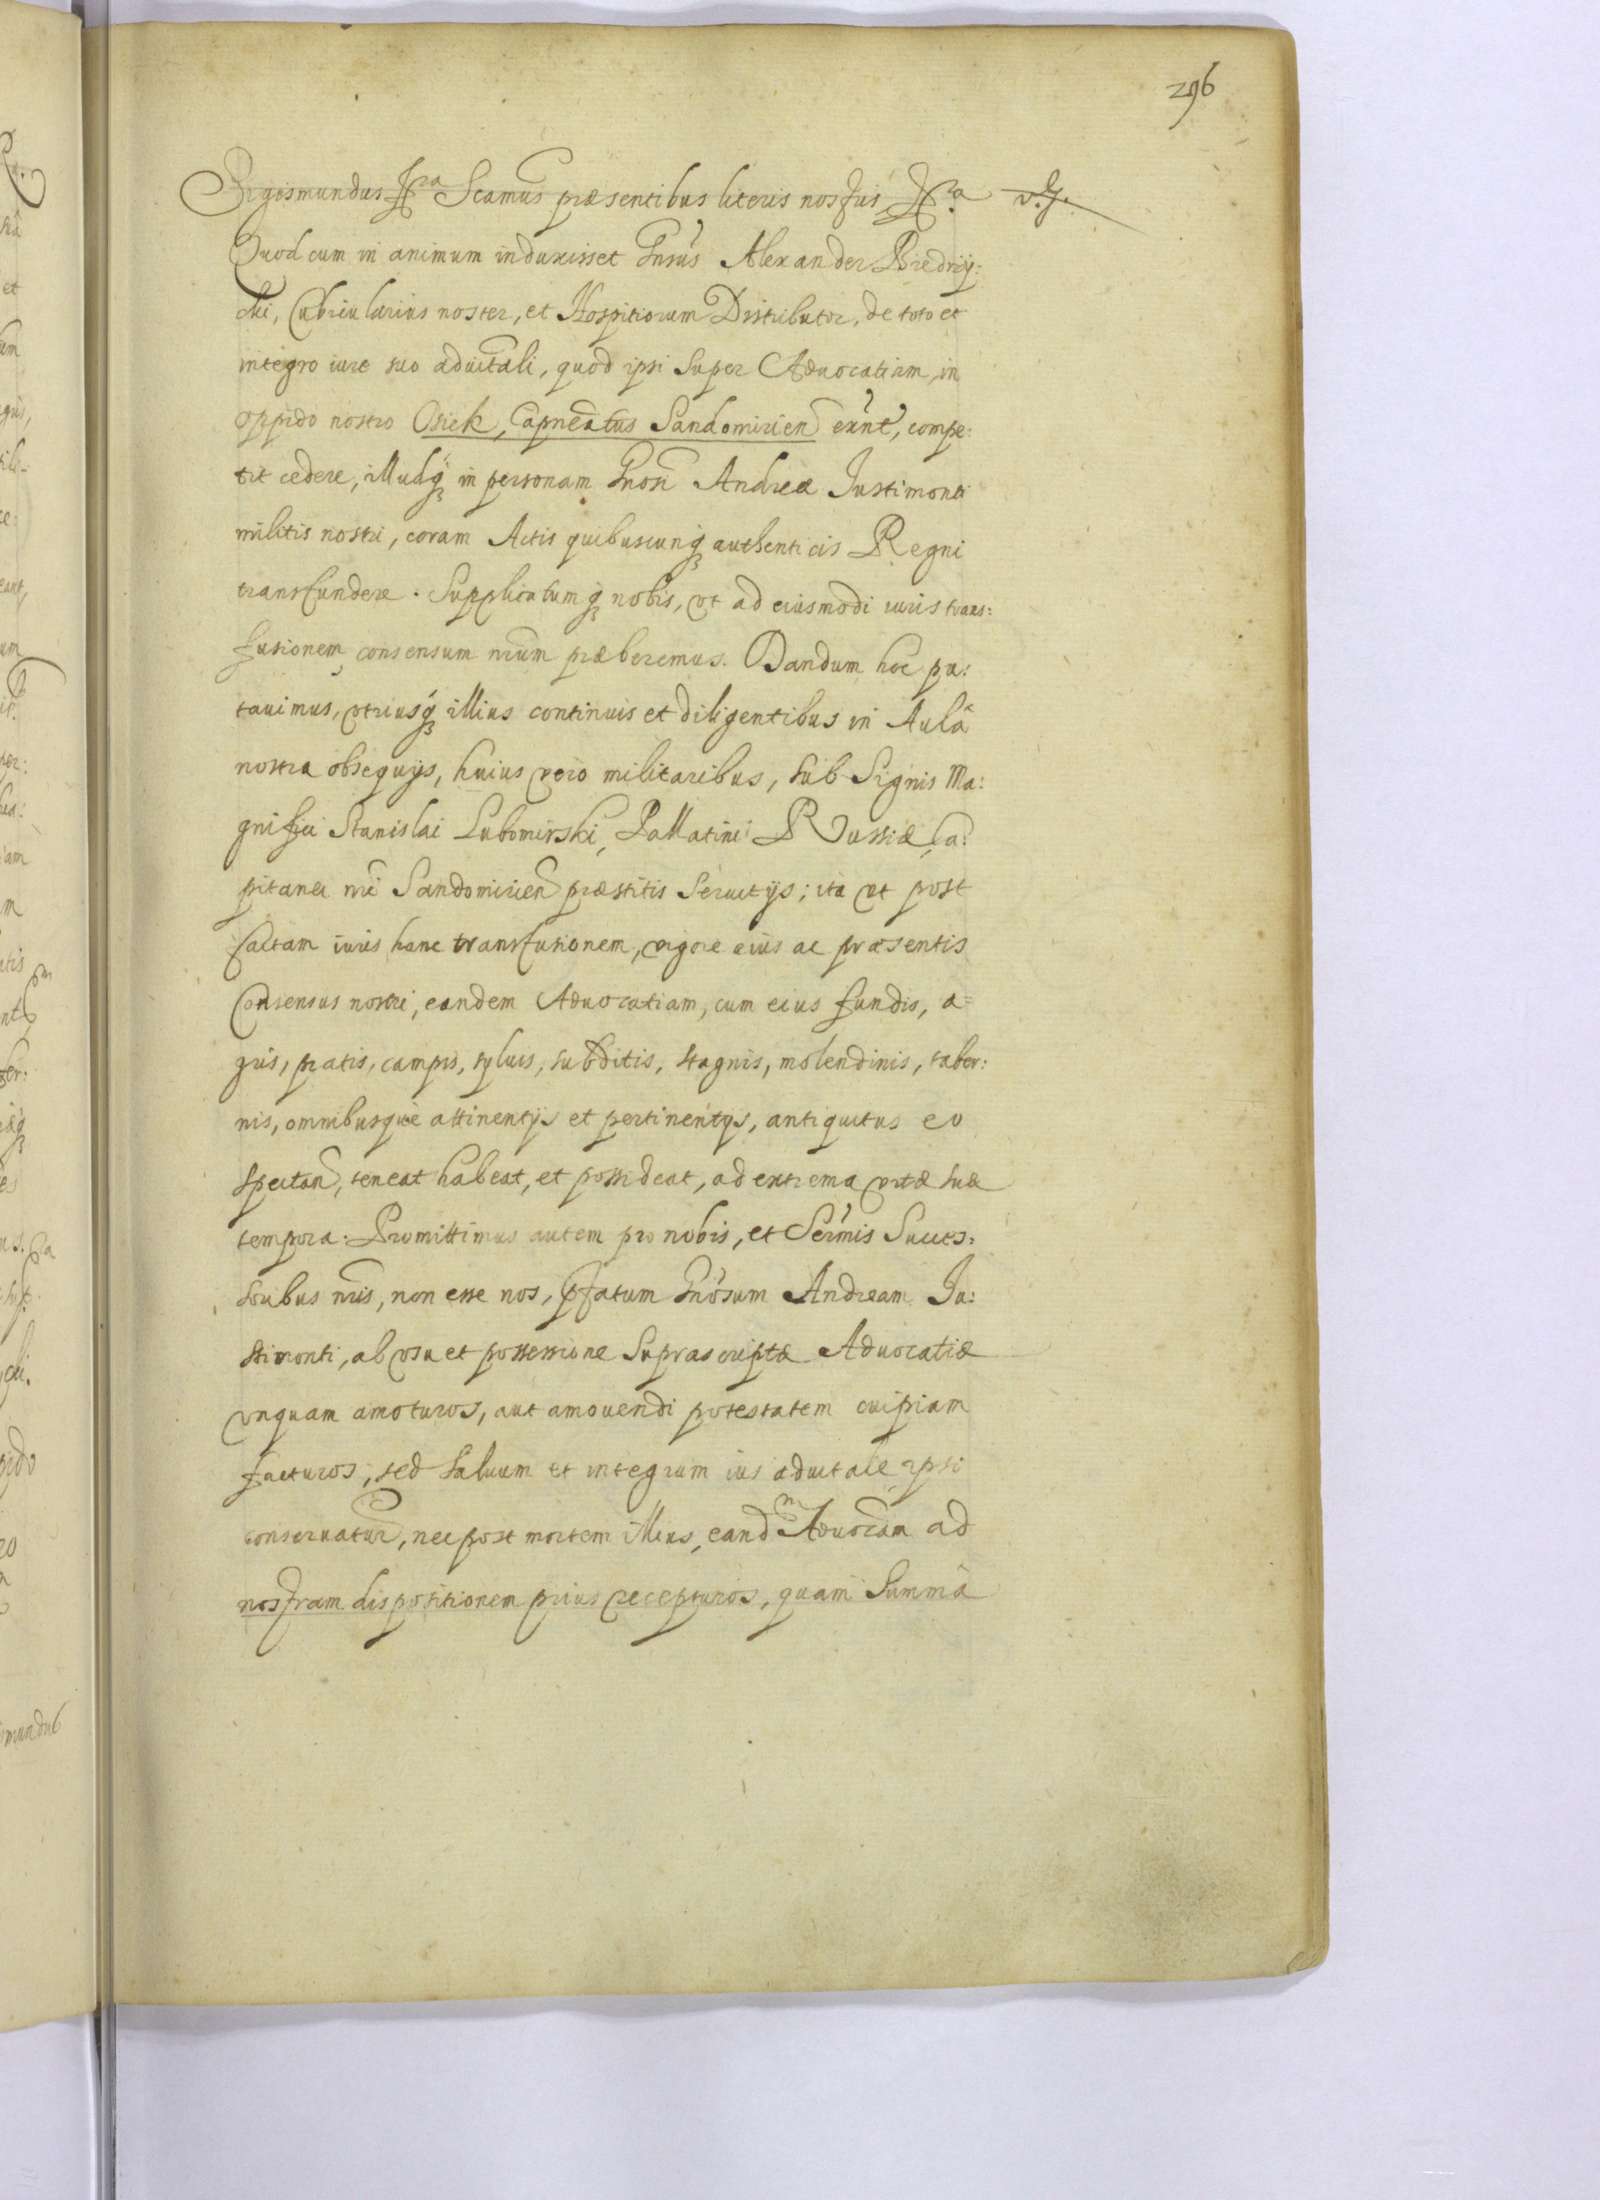 296
Sigismundus &ra Scamus præsentibus literis nostris &ra v. g.
Quod cum in animum induxisset Gnsus Alexander Biedrzy:
cki, Cubicularius noster, et Hospitiorum Distributor, de toto et
integro iure suo aduitali, quod ipsi super Aduocatiam, in
oppido nostro Osiek, Capneatus Sandomirien exnt, compe:
tit cedere, illudq3 in personam Gnosi Andreæ Justimonti
militis nostri, coram Actis quibuscunq3 authenticis Regni
transfundere. Supplicatumq3 nobis, vt ad eiusmodi iuris trans:
fusionem consensum nrum præberemus. Dandum hoc pu:
tauimus, vtriusq3 illius continuis et diligentibus in Aulâ
nostra obsequijs, huius vero militaribus, sub Signis Ma:
gnifici Stanislai Lubomirski, Pallatini Russiæ, Ca:
pitanei nri Sandomirien præstitis Seruitijs; ita vt post
factam iuris hanc transfusionem, vigore eius ac præsentis
Consensus nostri, eandem Aduocatiam, cum eius fundis, a=
gris, pratis, campis, syluis, subditis, stagnis, molendinis, taber:
nis, omnibusque attinentijs et pertinentijs, antiquitus eo
spectan, teneat habeat, et possideat, ad extrema vitæ suæ
tempora. Promittimus autem pro nobis, et Sermis Succes:
soribus nris, non esse nos, pfatum Gnosum Andream Ju:
stimonti, ab vsu et possessione Suprascriptæ Aduocatiæ
vnquam amoturos, aut amouendi potestatem cuipiam
facturos, sed saluum et integrum ius aduitale ipsi
conseruatur, nec post mortem illius, eandm Aduocam ad
nostram dispositionem prius recepturos, quam Summâ